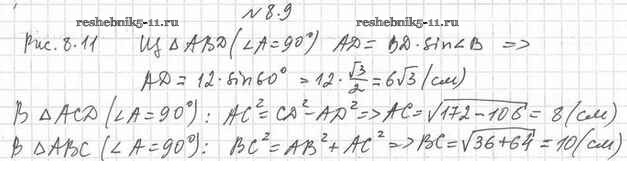 №8.9
reshebnik5-11.ru
reshebnik5-11.ru
Рис. 8.11 Из △ABD (∠A=90°) AD = BD·sin∠B =>
AD = 12·sin60° = 12·√3/2 = 6√3 (см)
В △ACD (∠A=90°): AC² = CD² - AD² => AC = √(172-108) = 8 (см)
В △ABC (∠A=90°): BC² = AB² + AC² => BC = √(36+64) = 10 (см)